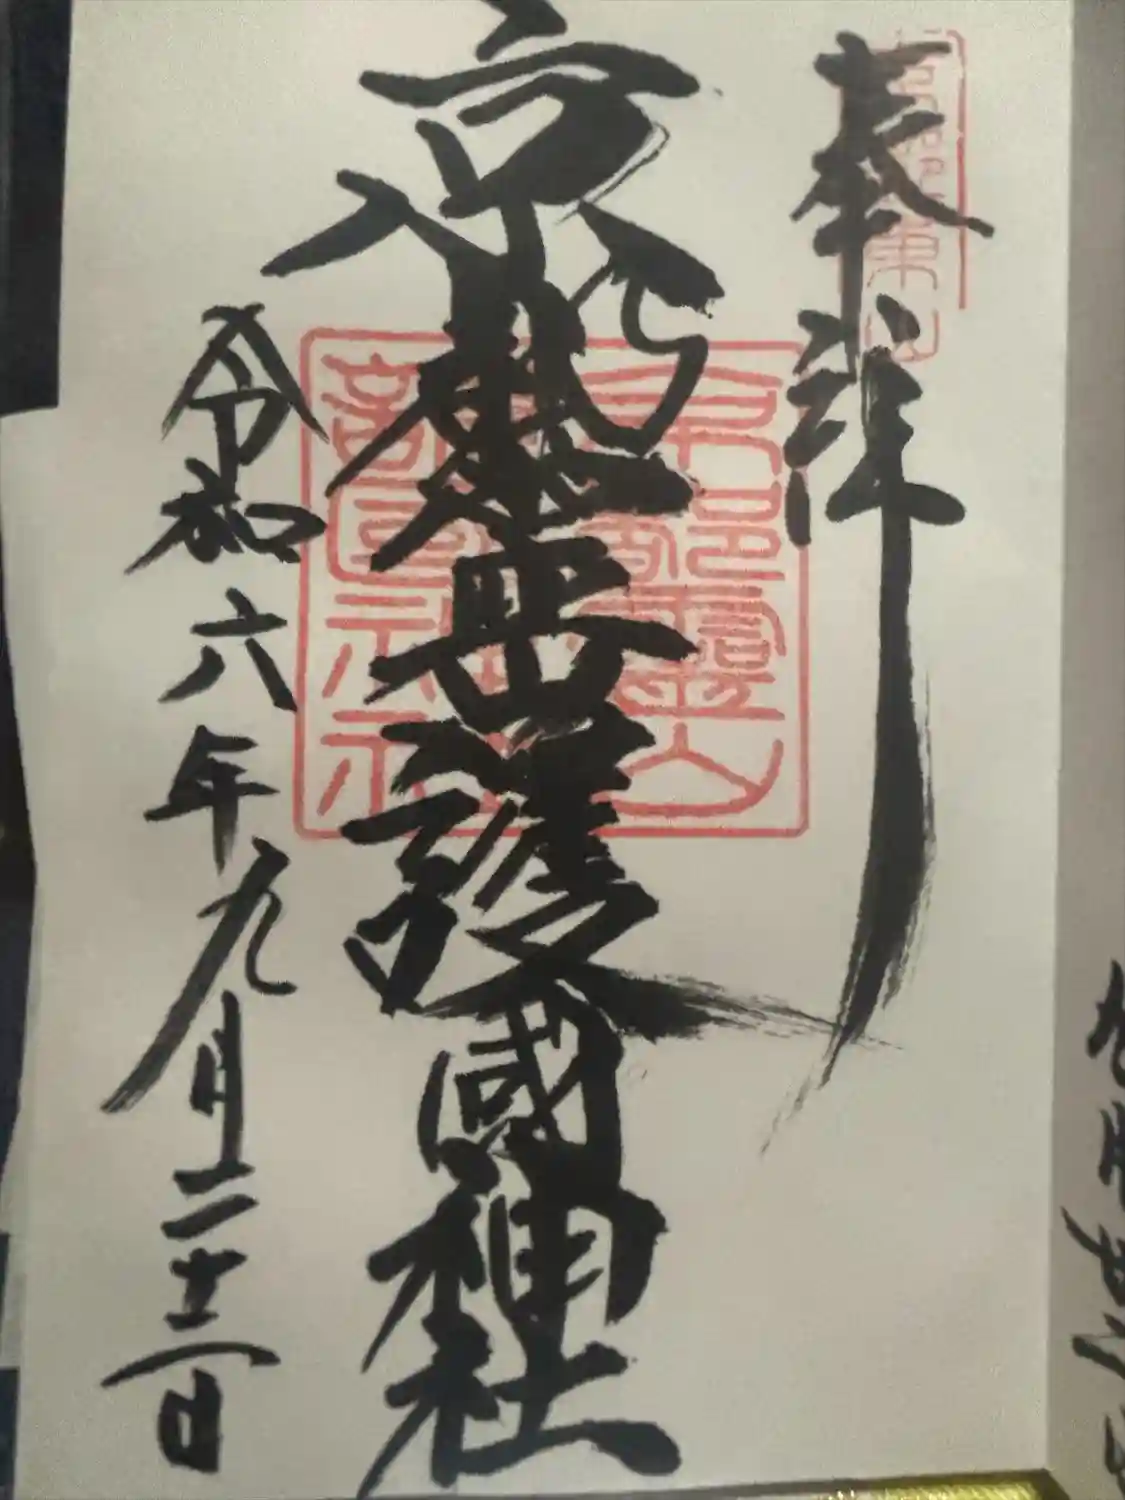 奉拝
京都霊山護國神社
令和六年九月二十二日
京都靈山
護國神社